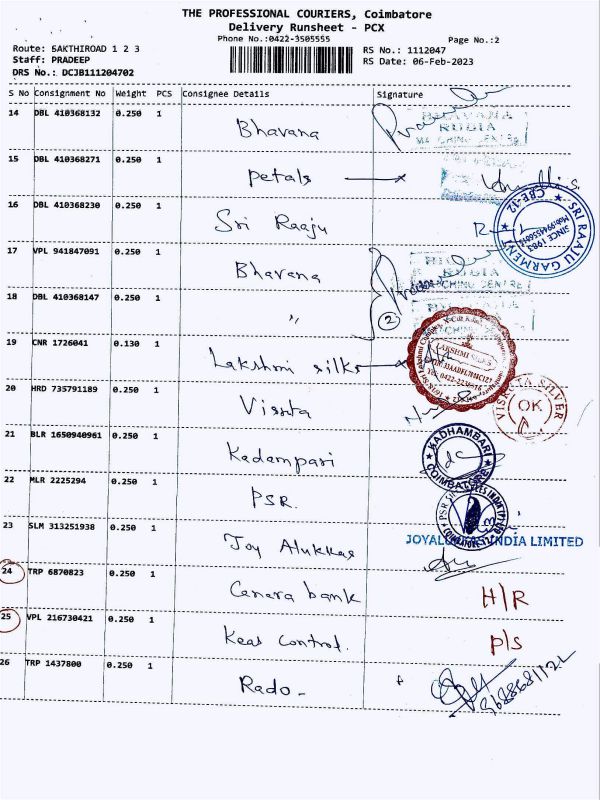 THE PROFESSIONAL COURIERS, Coimbatore
Delivery Runsheet - PCX
Phone No.:0422-3505555
Page No.:2
Route: SAKTHIROAD 1 2 3
Staff: PRADEEP
DRS No.: DCJB111204702
RS No.: 1112047
RS Date: 06-Feb-2023
S No Consignment No Weight PCS Consignee Details Signature
14 DBL 410368132 0.250 1 Bhavana
BHAVANA
RUBIA
MATCHING CENTRE
15 DBL 410368271 0.250 1 Petals
16 DBL 410368230 0.250 1 Sri Raaju
SRI RAAJU GARMENT
CBE-12
SINCE 1983
17 VPL 941847091 0.250 1 Bhavana
RUBIA
MATCHING CENTRE
18 DBL 410368147 0.250 1 "
2
19 CNR 1726041 0.130 1 Lakshmi silks
LAKSHMI SILKS
20 HRD 735791189 0.250 1 Vishta
SILVER
OK
21 BLR 1650940961 0.250 1 Kadampari
KADHAMBARI
COIMBATORE
22 MLR 2225294 0.250 1 PSR
23 SLM 313251938 0.250 1 Joy Alukkas
JOYALUKKAS INDIA LIMITED
24 TRP 6870823 0.250 1 Canara bank H/R
25 VPL 216730421 0.250 1 Keas Control. P/S
26 TRP 1437800 0.250 1 Rado -